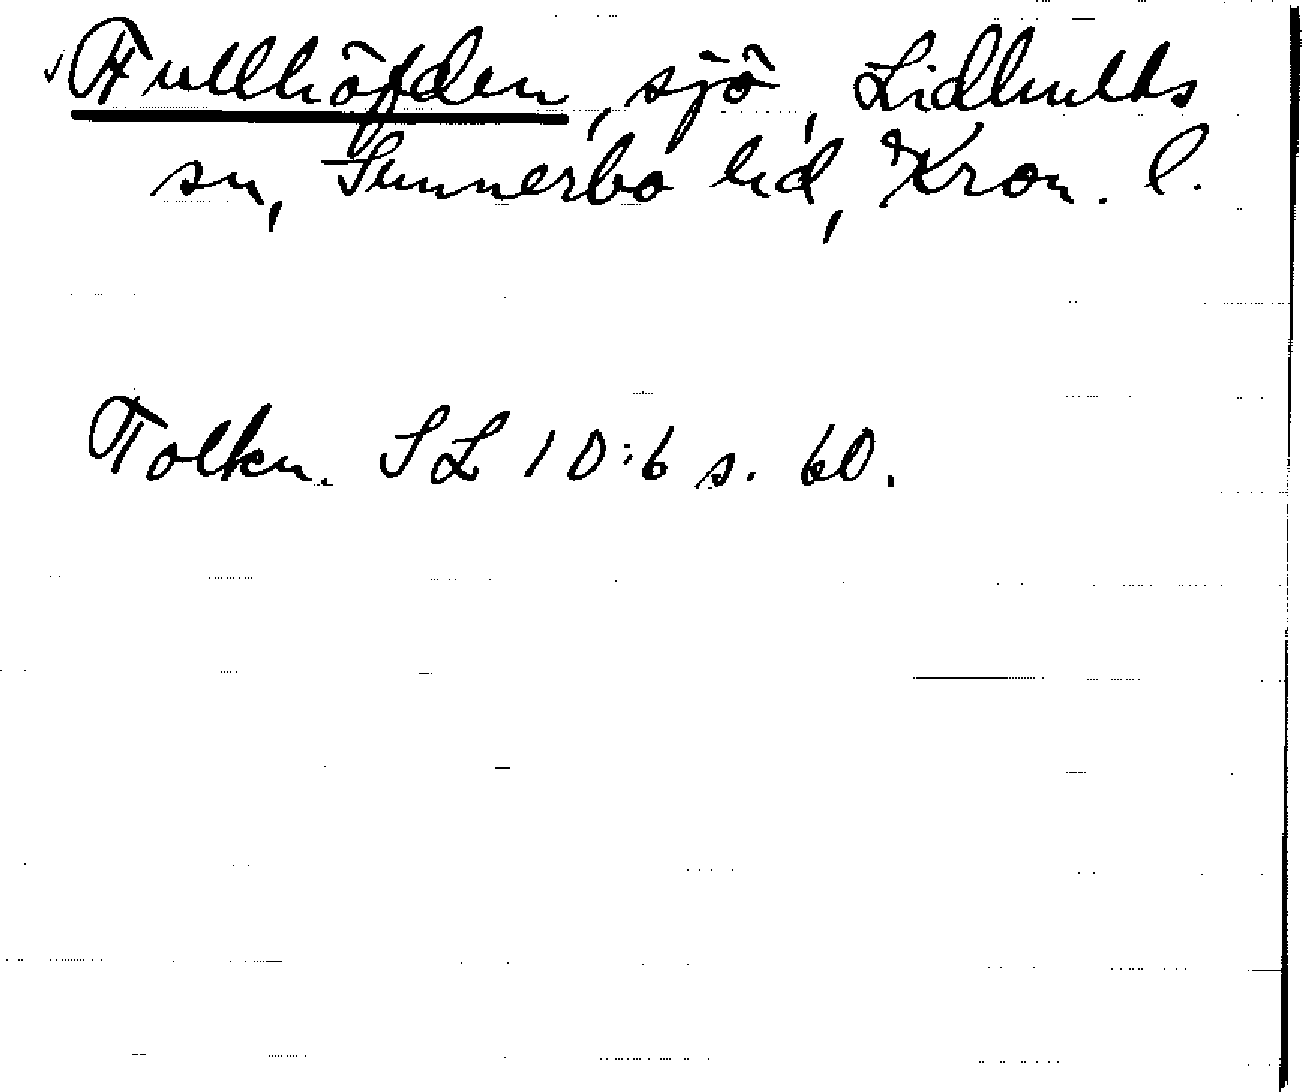 Fullhöfden, sjö, Lidhults
sn, Sunnerbo hd, Kron. l.
Tolkn. SL 10:6 s. 60.